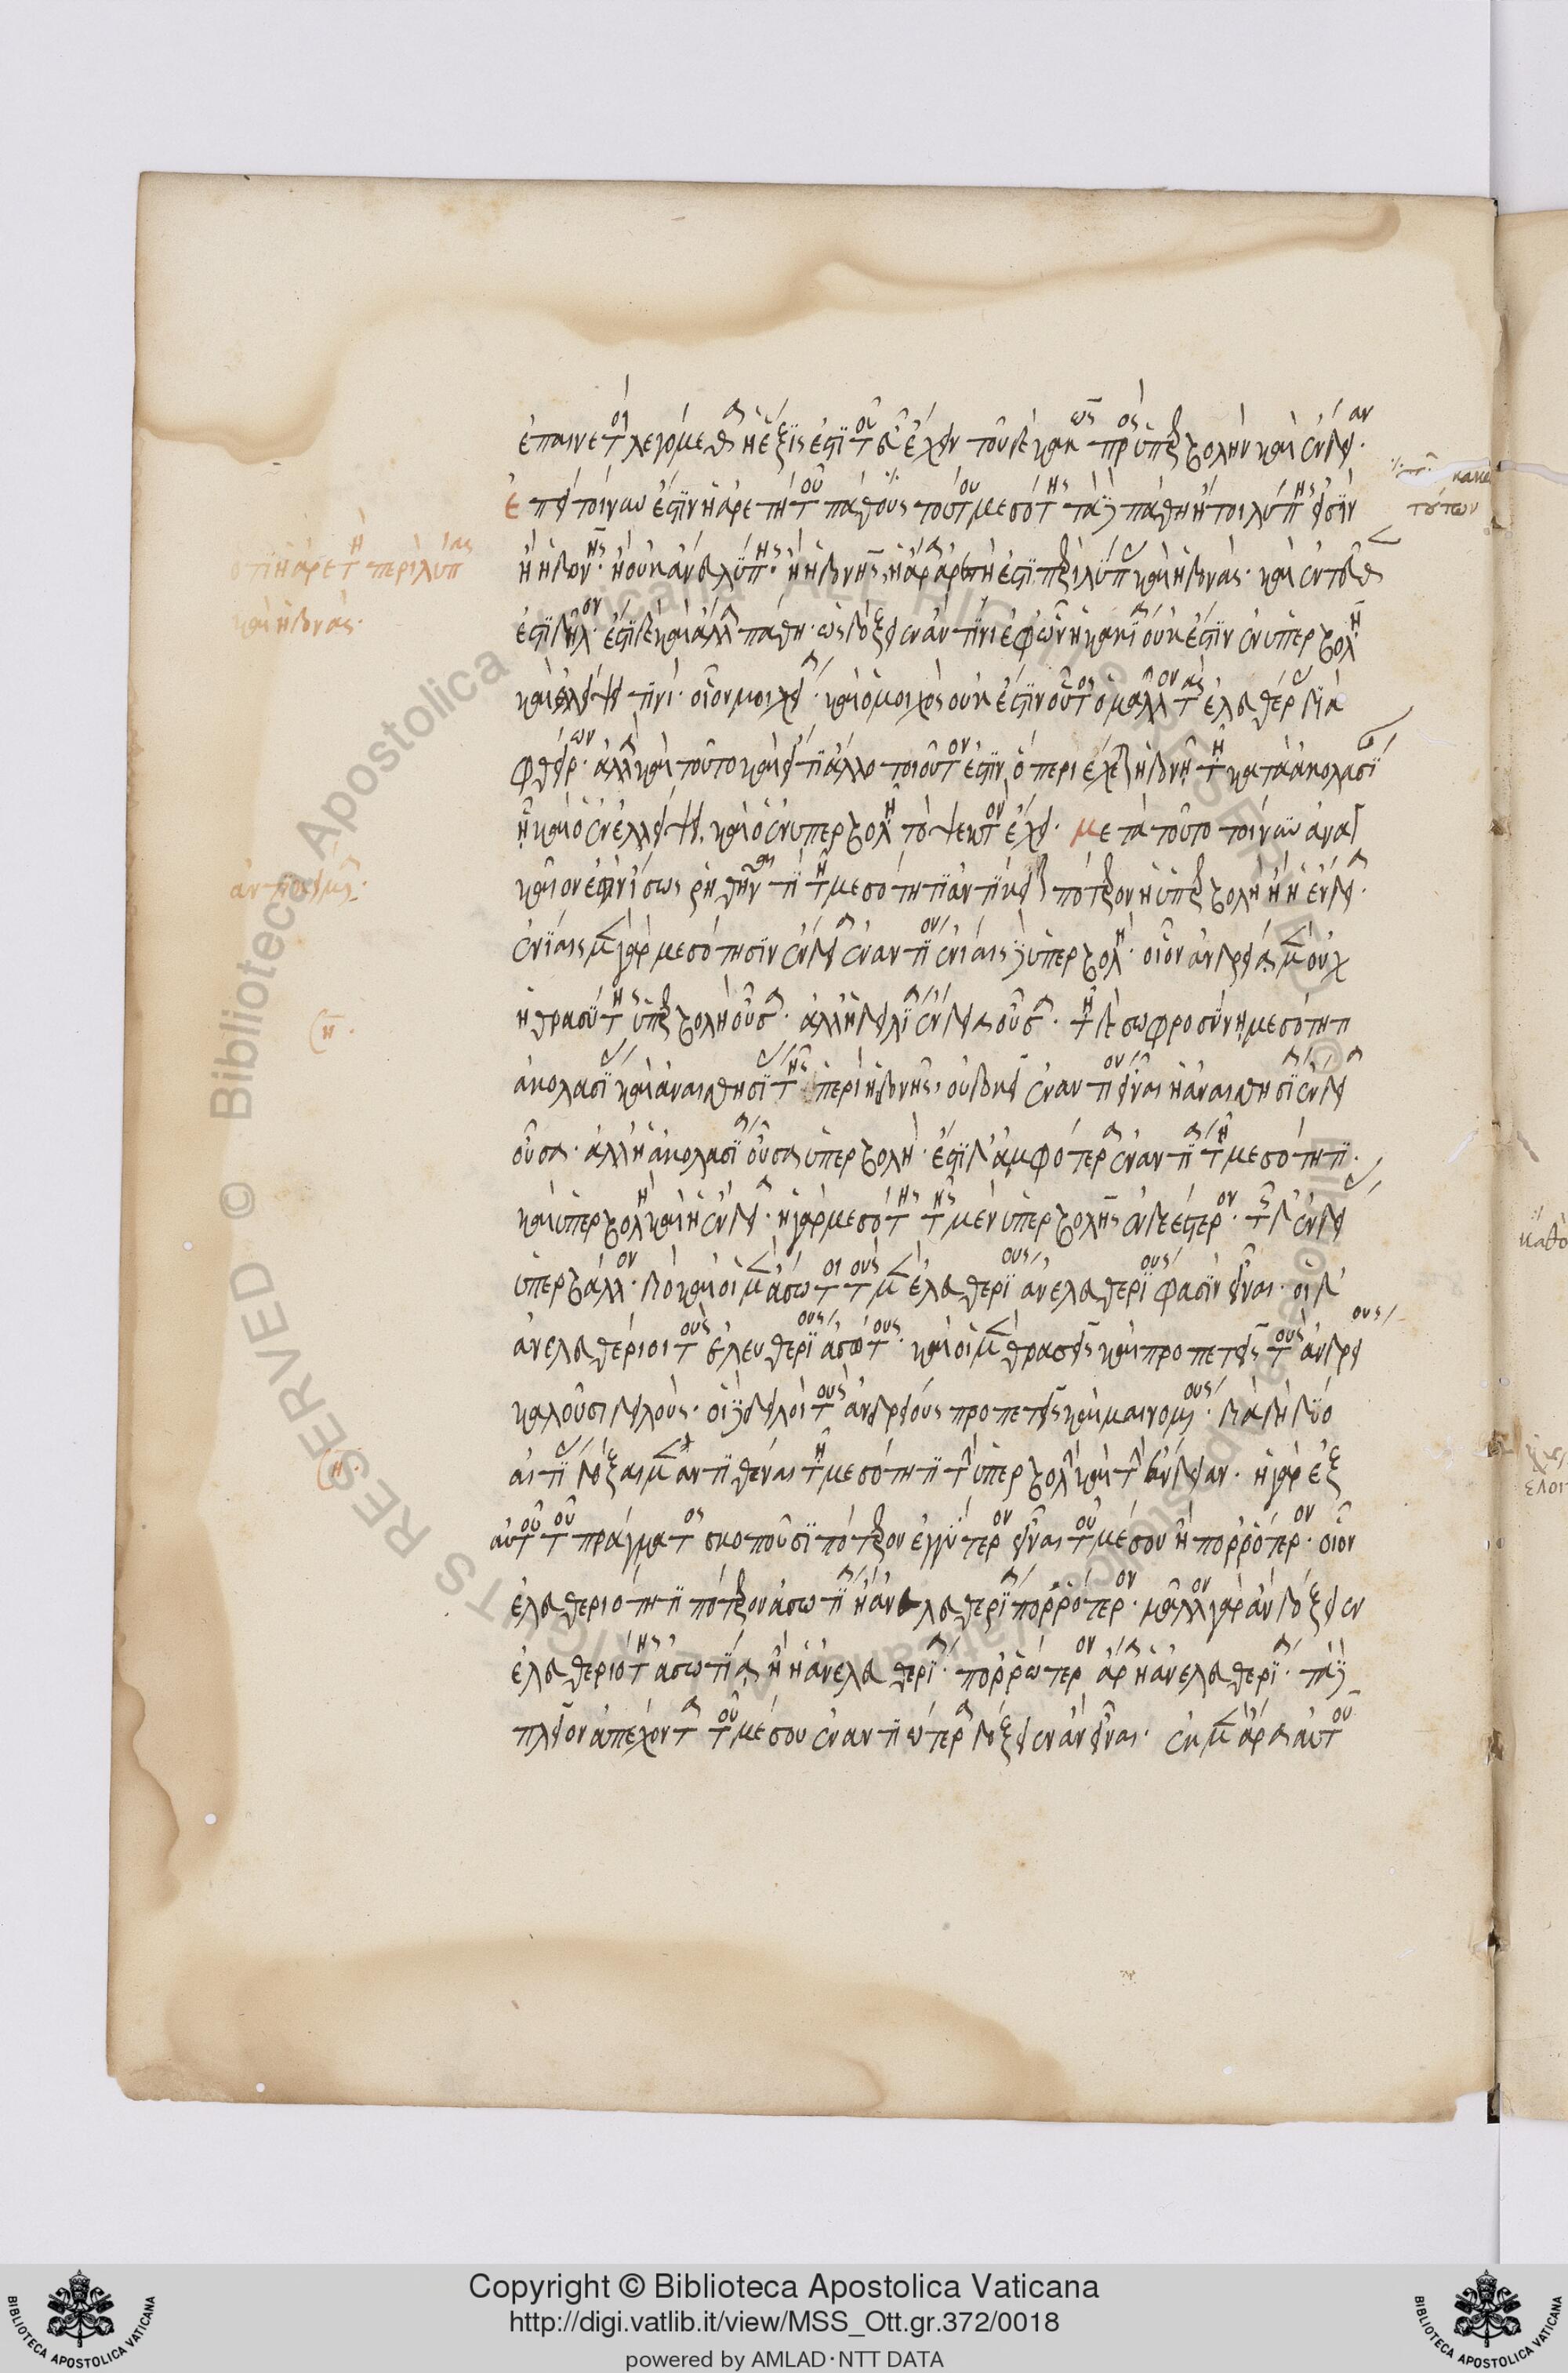 ἐπαινετοὶ λεγόμεθα ἡ ἕξις ἐστὶ τοῦ εὖ ἔχειν τοῦ δὲ κακῶς πρὸς ὑπερβολὴν καὶ ἔνδειαν·
ἐπεὶ τοίνυν ἐστὶν ἡ ἀρετὴ τοῦ πάθους τούτου μεσότης τὰ δὲ πάθη ἤτοι λύπης εἰσὶν
ἢ ἡδονῆς· ἢ οὐκ ἄνευ λύπης· ἢ ἡδονῆς, ἡ ἄρα ἀρετὴ ἐστὶ περὶ λύπας καὶ ἡδονάς· καὶ ἐντεῦθεν
ἐστὶ δῆλον· ἐστὶ δὲ καὶ ἄλλα πάθη· ὡς δόξειεν ἄν τινι ἐφ' ὧν ἡ κακία οὐκ ἔστιν ἐν ὑπερβολῇ
καὶ ἐλλείψει τινί· οἷον μοιχεία· καὶ ὁ μοιχὸς οὐκ ἔστιν οὗτος ὁ μᾶλλον τὰς ἐλευθέρας δια
φθείρων· ἀλλὰ καὶ τοῦτο καὶ εἴ τι ἄλλο τοιοῦτον ἐστὶν, ὃ περιέχεται ἡδονῇ τῇ κατὰ ἀκολασίαν
ᾗ καὶ ὃ ἐν ἐλλείψει, καὶ ὃ ἐν ὑπερβολῇ τὸ ψεκτὸν ἔχει· μετὰ τοῦτο τοίνυν ἀναγ
καῖον ἐστὶν ἴσως ῥηθῆναι τί τῇ μεσότητι ἀντίκειται πότερον ἡ ὑπερβολὴ ἢ ἡ ἔνδεια·
ἐνίαις μὲν γὰρ μεσότησιν ἔνδεια ἐναντίον ἐνίαις δὲ ὑπερβολή· οἷον ἀνδρείᾳ μὲν οὐχ
ἡ θρασύτης ὑπερβολὴ οὖσα· ἀλλ' ἡ δειλία ἔνδεια οὖσα· τῇ δὲ σωφροσύνῃ μεσότητι
ἀκολασίας καὶ ἀναισθησίας τῆς περὶ ἡδονῆς, οὐ δοκεῖ ἐναντίον εἶναι ἡ ἀναισθησία ἔνδεια
οὖσα· ἀλλ' ἡ ἀκολασία οὖσα ὑπερβολή· ἐστὶ δ' ἀμφότερα ἐναντία τῇ μεσότητι·
καὶ ὑπερβολὴ καὶ ἡ ἔνδεια· ἡ γὰρ μεσότης τῆς μὲν ὑπερβολῆς ἐνδεέστερον· τῆς δ' ἐνδείας
ὑπερβάλλον· διὸ καὶ οἱ μὲν ἄσωτοι τοὺς μὲν ἐλευθερίους ἀνελευθερίους φασὶν εἶναι· οἱ δ'
ἀνελευθέριοι τοὺς ἐλευθερίους ἀσώτους· καὶ οἱ μὲν θρασεῖς καὶ προπετεῖς τοὺς ἀνδρείους
καλοῦσι δειλούς· οἱ δὲ δειλοὶ τοὺς ἀνδρείους προπετεῖς καὶ μαινομένους· διὰ δὴ δύο
αἰτίας δόξαιμεν ἀντιθέναι τῇ μεσότητι τὴν ὑπερβολὴν καὶ τὴν ἔνδειαν· ἢ γὰρ ἐξ
αὐτοῦ τοῦ πράγματος σκοποῦσι πότερον ἐγγύτερον εἶναι τοῦ μέσου ἢ πορρότερον· οἷον
ἐλευθεριότητι πότερον ἀσωτία ἢ ἀνελευθερία πορρότερον· μᾶλλον γὰρ ἂν δόξειεν
ἐλευθεριότης ἀσωτία, ἢ ἡ ἀνελευθερία· πορρώτερον ἄρα ἡ ἀνελευθερία· τὰ δὲ
πλεῖον ἀπέχοντα τοῦ μέσου ἐναντιώτερα δόξειεν ἂν εἶναι· ἐκ μὲν ἄρα αὐτοῦ
ὅτι ἡ ἀρετὴ περὶ λύπας
καὶ ἡδονάς·
Copyright © Biblioteca Apostolica Vaticana
http://digi.vatlib.it/view/MSS_Ott.gr.372/0018
powered by AMLAD·NTT DATA
BIBLIOTECA APOSTOLICA VATICANA
BIBLIOTECA APOSTOLICA VATICANA